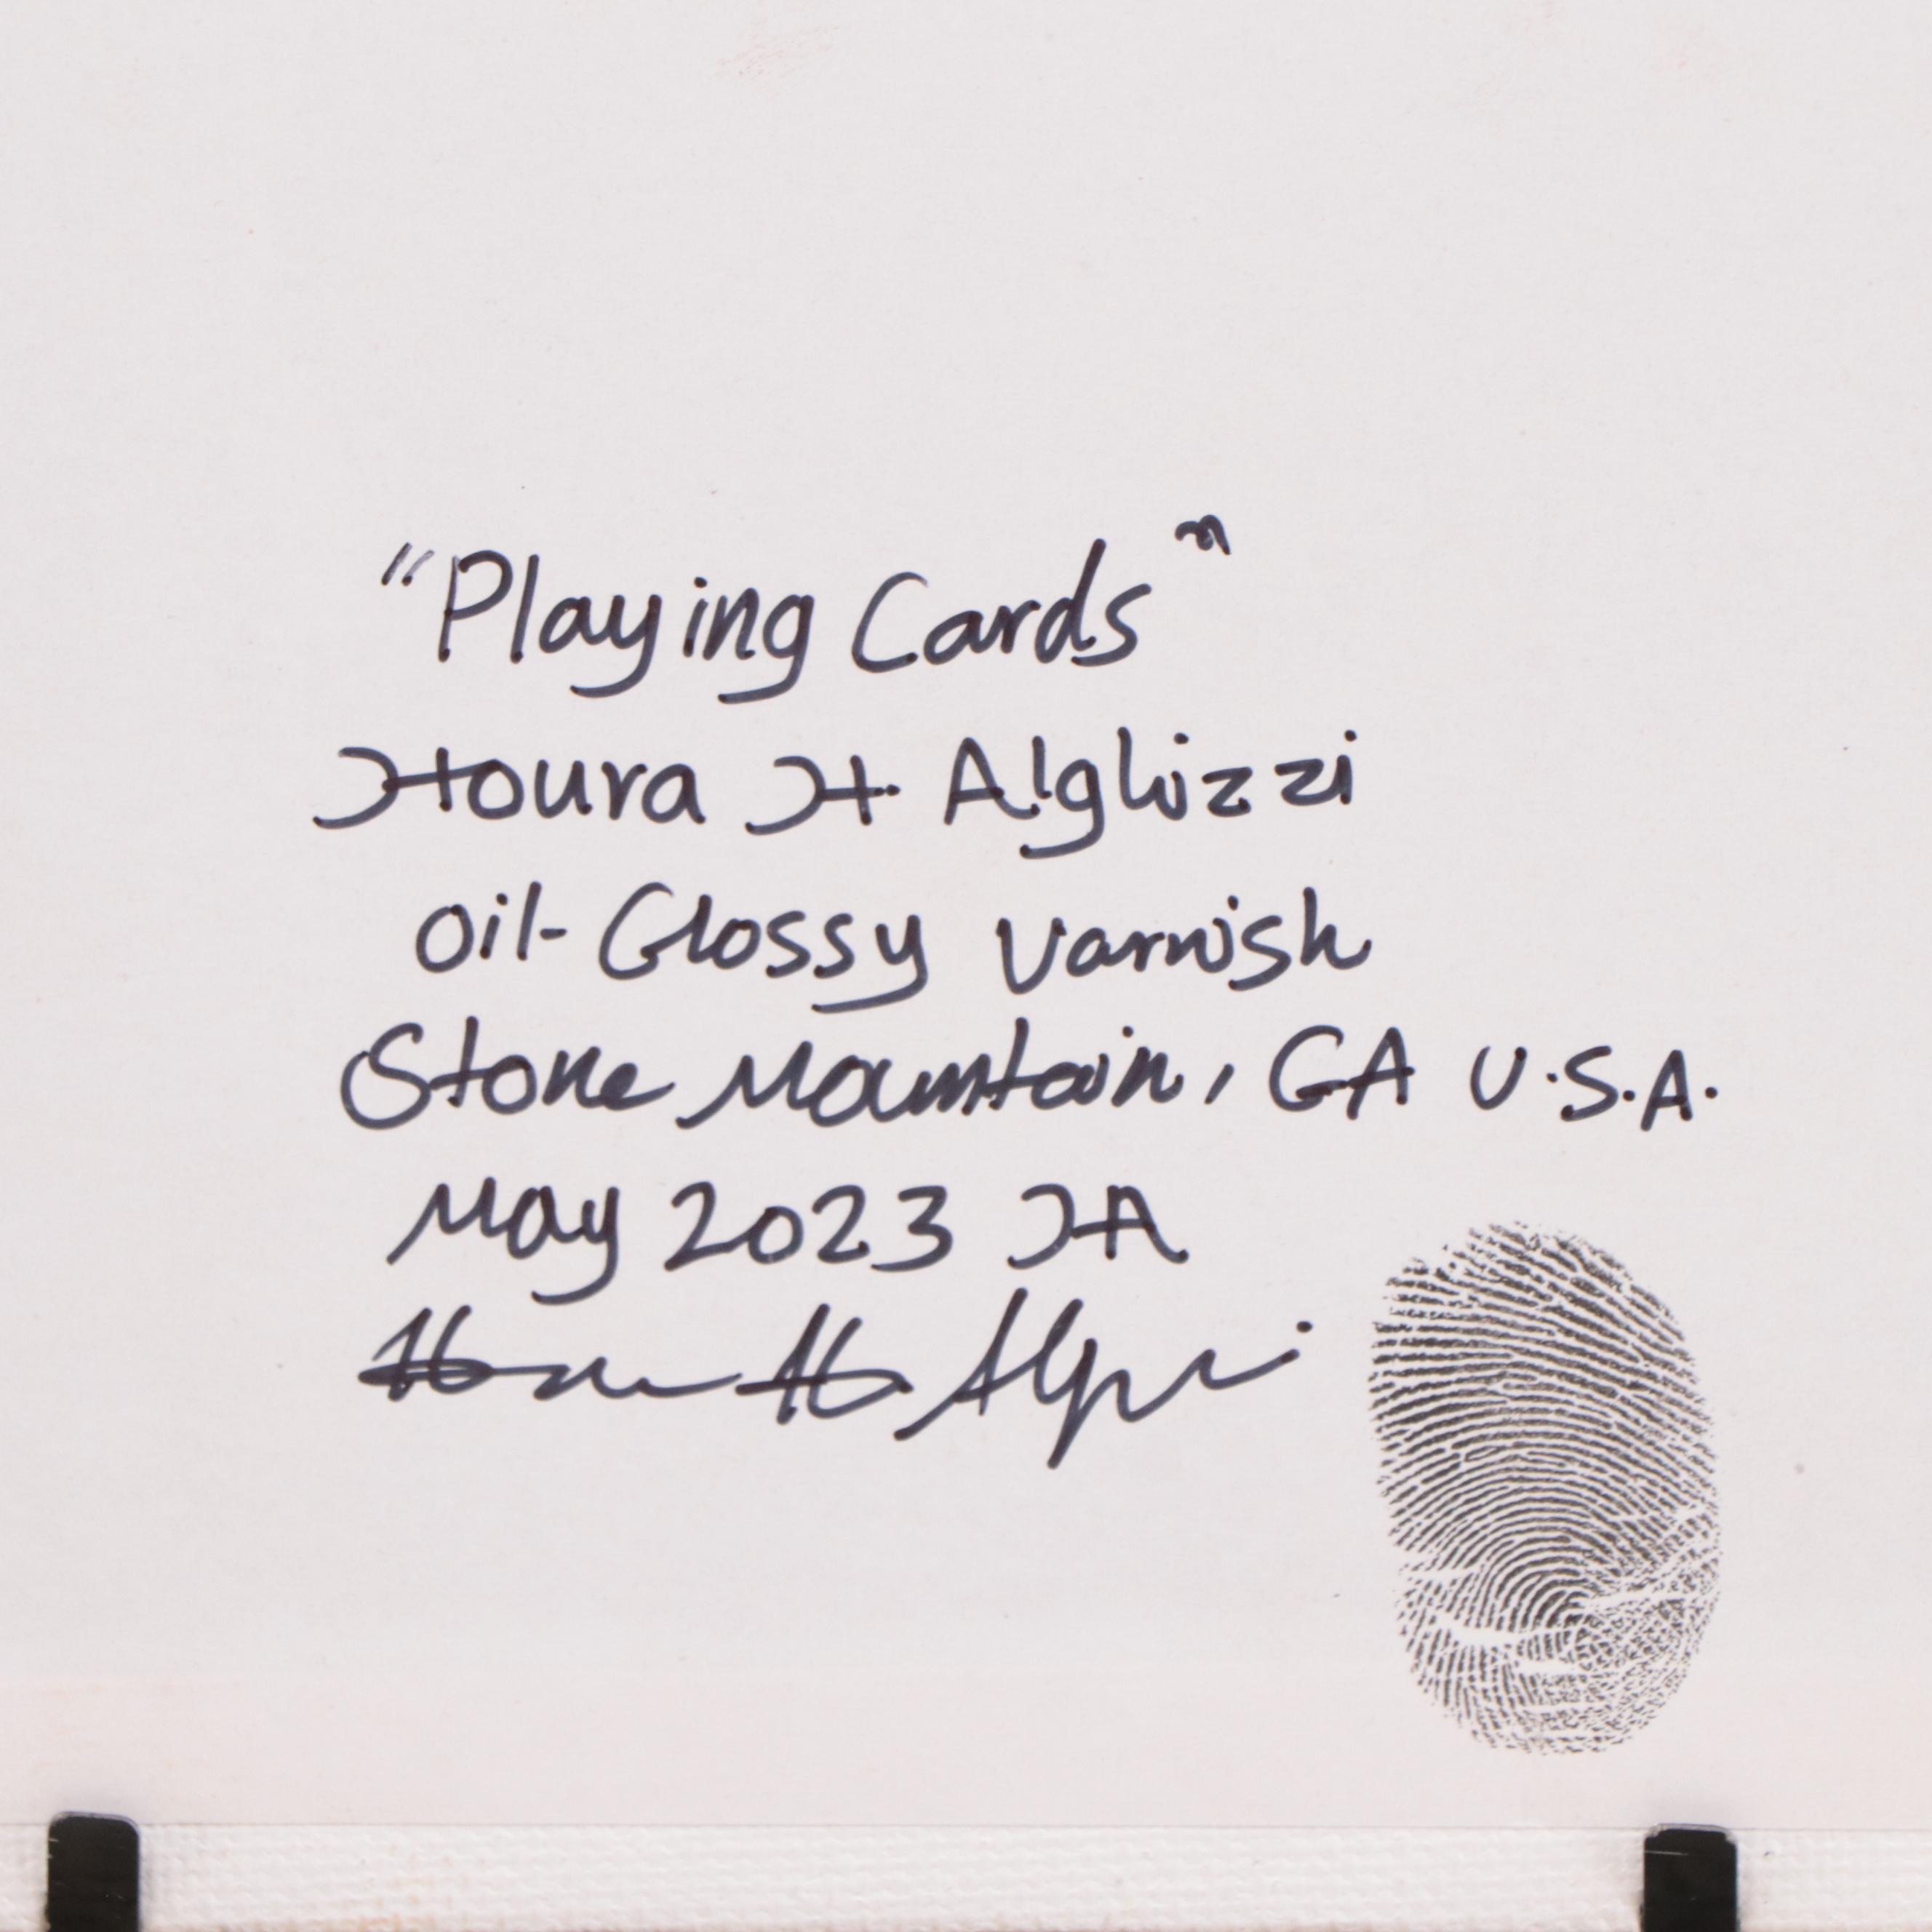 "Playing Cards"
Houra H. Alghizzi
Oil-Glossy Varnish
Stone Mountain, GA U.S.A.
May 2023 HA